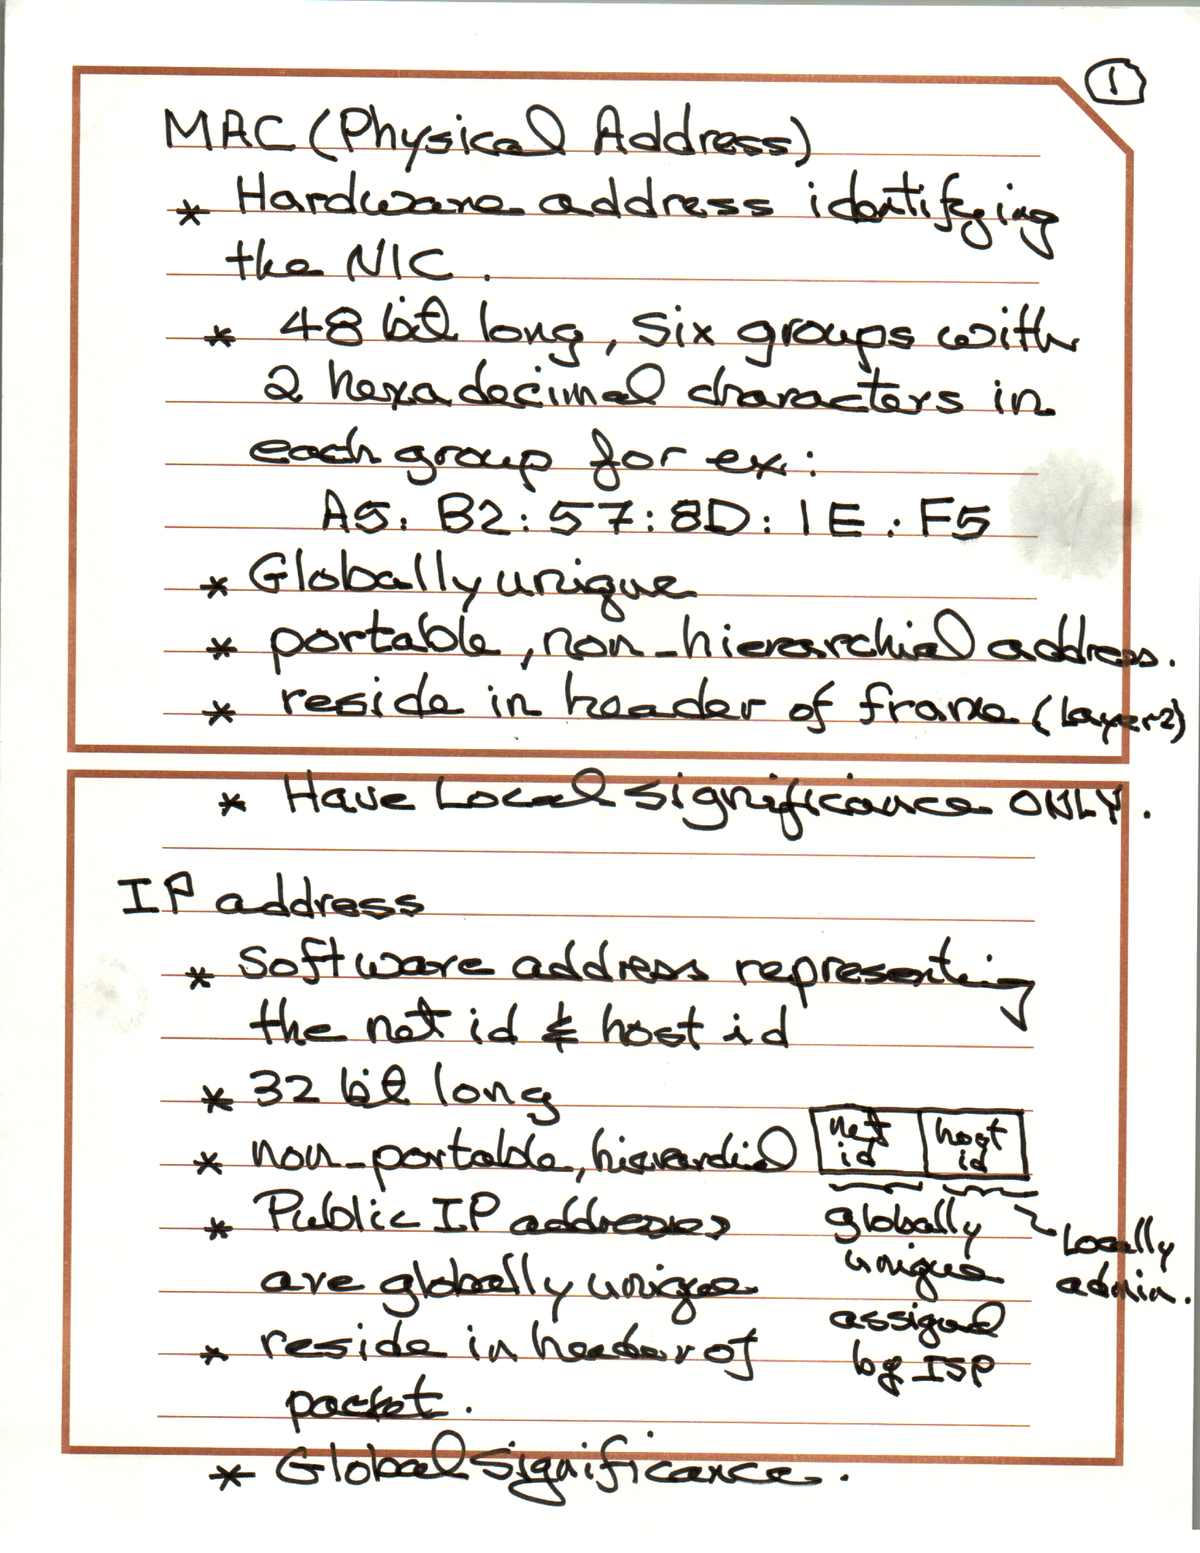 1
MAC (Physical Address)
* Hardware address identifying
the NIC.
* 48 bit long, six groups with
2 hexadecimal characters in
each group for ex:
A5: B2: 57: 8D: 1E: F5
* Globally unique
* portable, non-hierarchial address.
* reside in header of frame (Layer 2)
* Have Local significance ONLY.
IP address
* Software address representing
the net id & host id
* 32 bit long
* non-portable, hierarchial
net id
host id
* Public IP addresses
are globally unique
* reside in header of
packet.
globally
unique
assigned
by ISP
Locally
admin.
* Global significance.